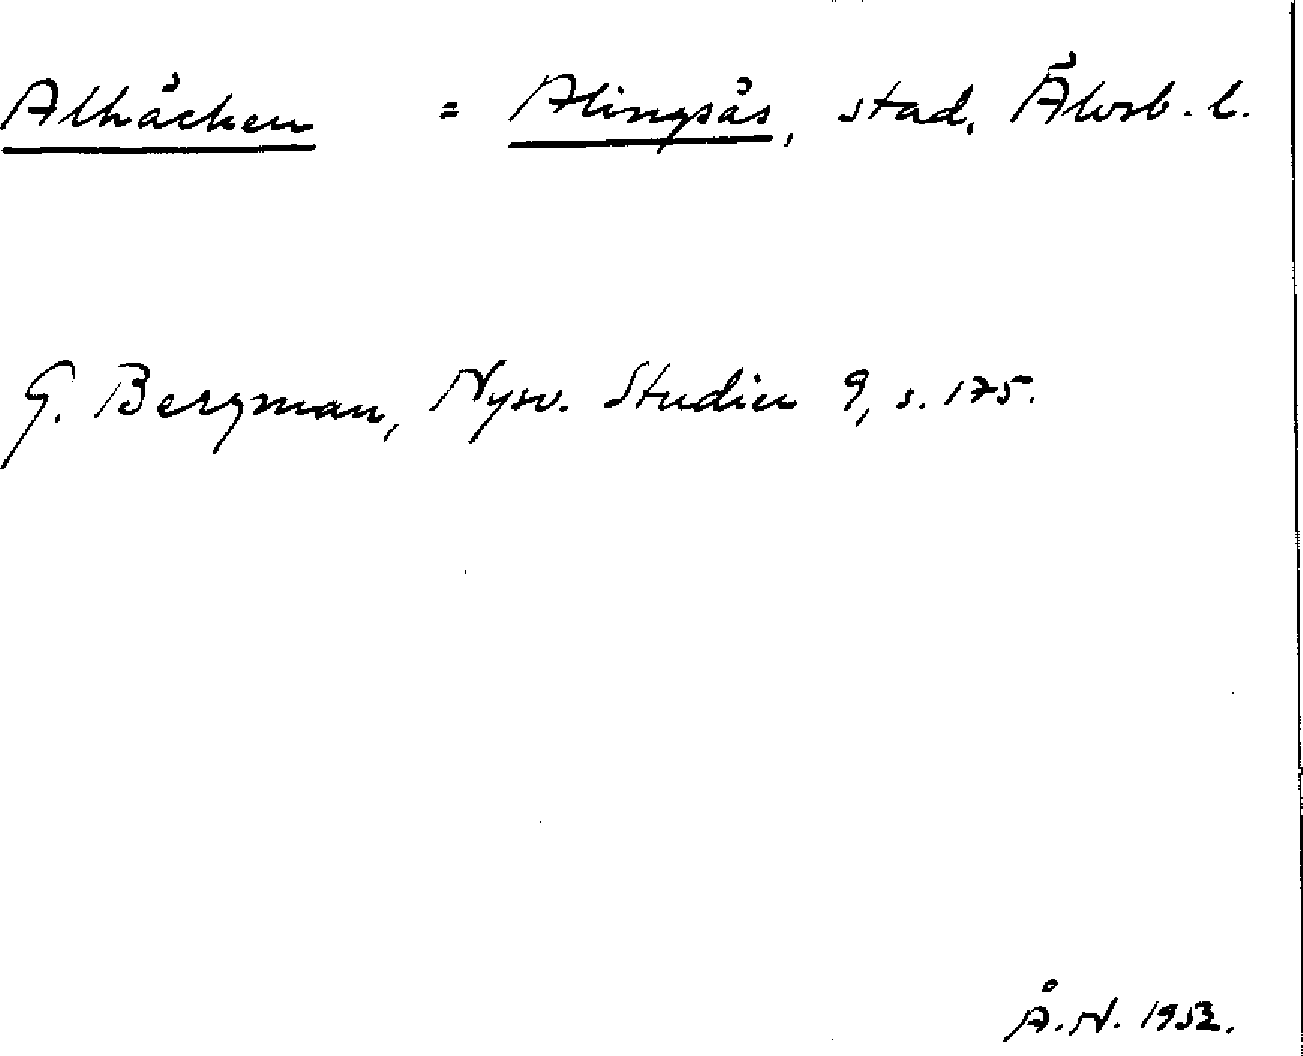 Alhäcken = Alingsås, stad, Älvsb. l.
G. Bergman, Nysv. Studier 9, s. 175.
Å. N. 1952.